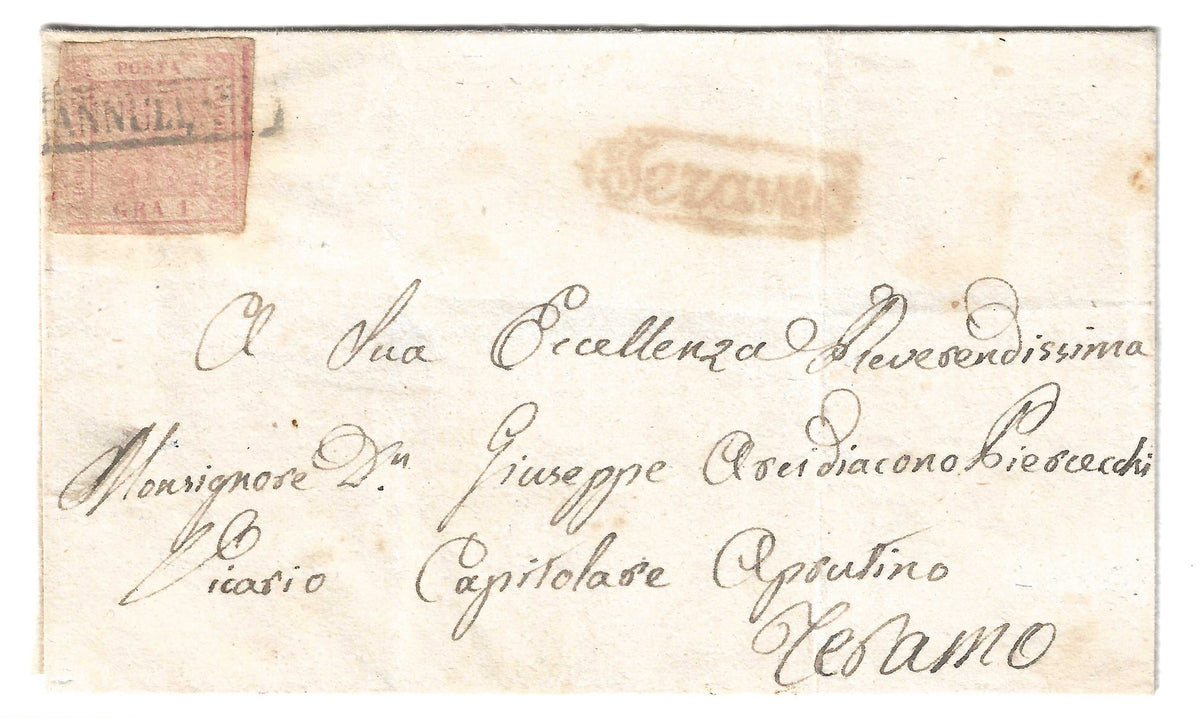 POSTA
ANNULL
GRA 1
Teramo
A Sua Eccellenza Reverendissima
Monsignore Dn. Giuseppe Arcidiacono Piercecchi
Vicario Capitolare Aprutino
Teramo